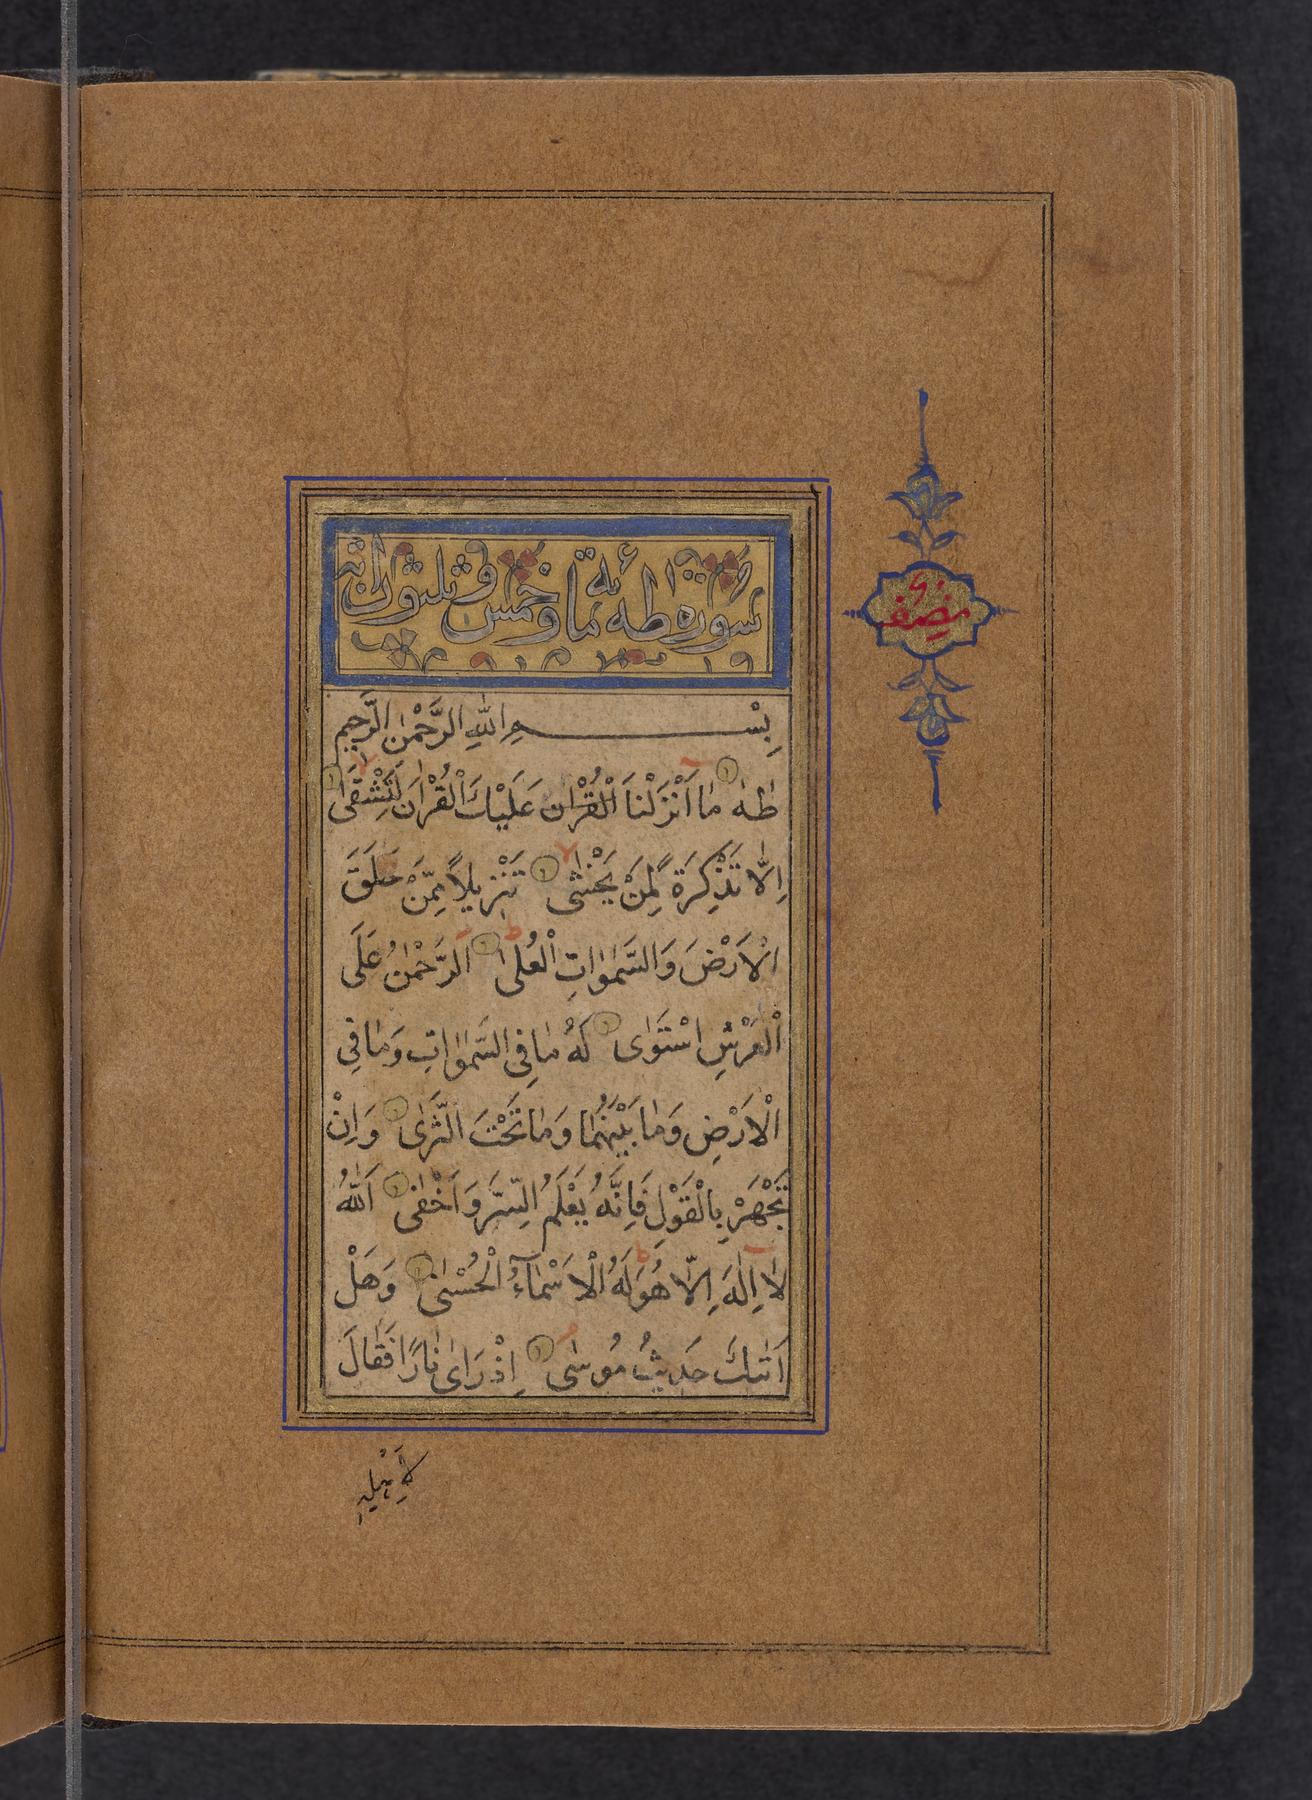 سورة طه مائة وخمس وثلثون اية
نصف
بِسْمِ اللّٰهِ الرَّحْمٰنِ الرَّحِيمِ
طٰهٰ مٰا اَنْزَلْنٰا الْقُرْاٰن عَلَيْكَ الْقُرْاٰنَ لِتَشْقٰى
اِلّٰا تَذْكِرَةً لِمَنْ يَخْشٰى تَنْزِيلًا مِمَّنْ خَلَقَ
الْاَرْضَ وَالسَّمٰوٰاتِ الْعُلٰى اَلرَّحْمٰنُ عَلَى
الْعَرْشِ اسْتَوٰى لَهُ مٰا فِي السَّمٰوٰاتِ وَمٰا فِي
الْاَرْضِ وَمٰا بَيْنَهُمٰا وَمٰا تَحْتَ الثَّرٰى وَاِنْ
تَجْهَرْ بِالْقَوْلِ فَاِنَّهُ يَعْلَمُ السِّرَّ وَاَخْفٰى اَللّٰهُ
لٰا اِلٰهَ اِلّٰا هُوَ لَهُ الْاَسْمٰآءُ الْحُسْنٰى وَهَلْ
اَتٰىكَ حَدِيثُ مُوسٰى اِذْ رَاٰى نٰارًا فَقٰالَ
لِاَهْلِهِ